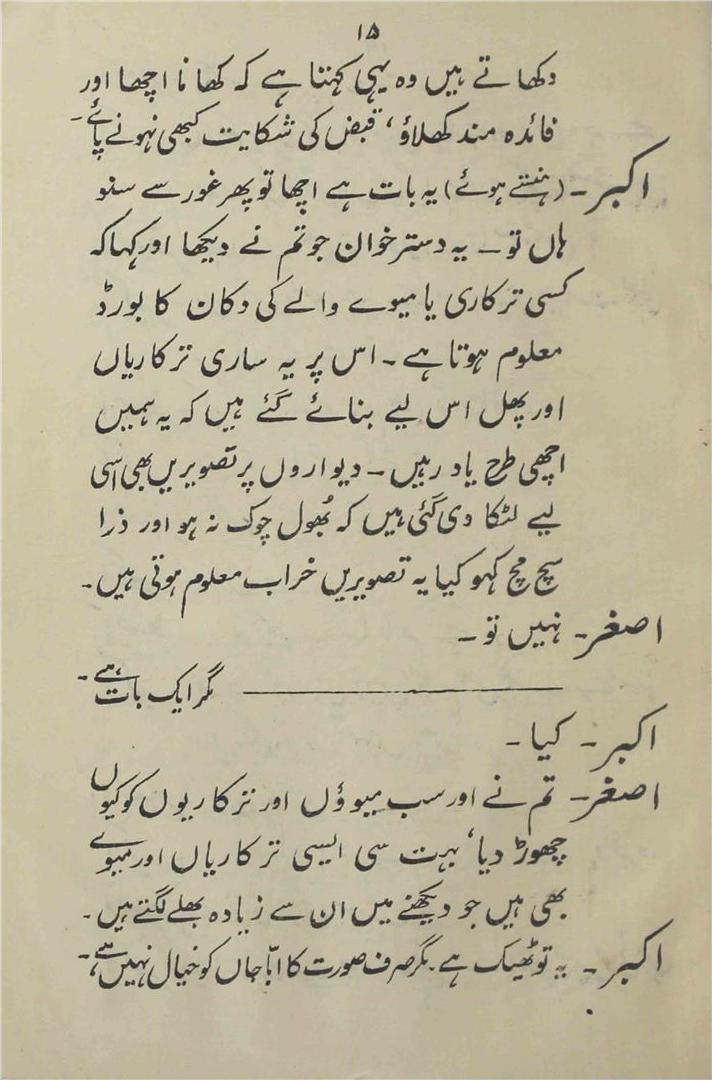 ۱۵
دکھاتے ہیں وہ یہی کہتا ہے کہ کھانا اچھا اور
فائدہ مند کھلاؤ، قبض کی شکایت کبھی نہونے پائے۔
اکبر۔ (ہنستے ہوئے) یہ بات ہے اچھا تو پھر غور سے سنو
ہاں تو۔ یہ دسترخوان جو تم نے دیکھا اور کہا کہ
کسی ترکاری یا میوے والے کی دکان کا بورڈ
معلوم ہوتا ہے۔ اس پر یہ ساری ترکاریاں
اور پھل اس لیے بنائے گئے ہیں کہ یہ ہمیں
اچھی طرح یاد رہیں۔ دیواروں پر تصویریں بھی اسی
لیے لٹکا دی گئی ہیں کہ بُھول چوک نہ ہو اور ذرا
سچ مچ کہو کیا یہ تصویریں خراب معلوم ہوتی ہیں۔
اصغر۔ نہیں تو۔
مگر ایک بات ہے۔
اکبر۔ کیا۔
اصغر۔ تم نے اور سب میووٴں اور ترکاریوں کو کیوں
چھوڑ دیا، بہت سی ایسی ترکاریاں اور میوے
بھی ہیں جو دیکھنے میں ان سے زیادہ بھلے لگتے ہیں۔
اکبر۔ یہ تو ٹھیک ہے۔ مگر صرف صورت کا ابّا جاں کو خیال نہیں ہے۔